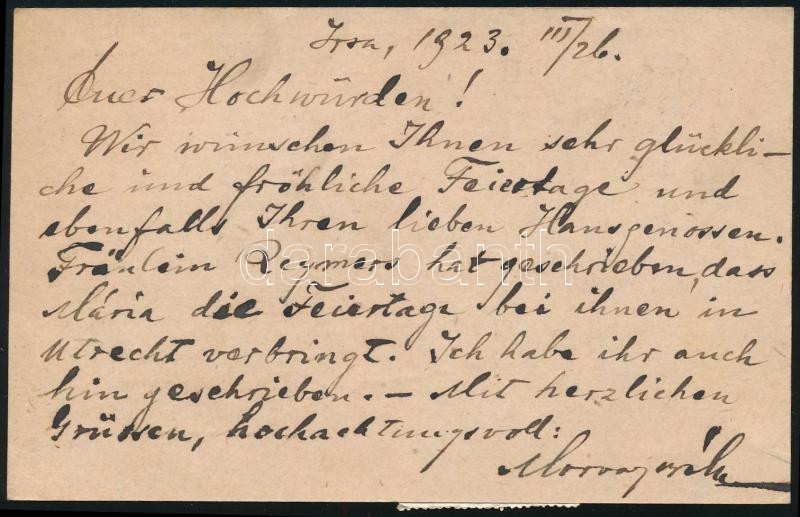 Irsa, 1923. III/26.
Euer Hochwürden!
Wir wünschen Ihnen sehr glückli-
che und fröhliche Feiertage und
ebenfalls Ihren lieben Hausgenossen.
Fräulein Reymers hat geschrieben, dass
Mária die Feiertage bei ihnen in
Utrecht verbringt. Ich habe ihr auch
hin geschrieben. – Mit herzlichen
Grüssen, hochachtungsvoll:
darabanth